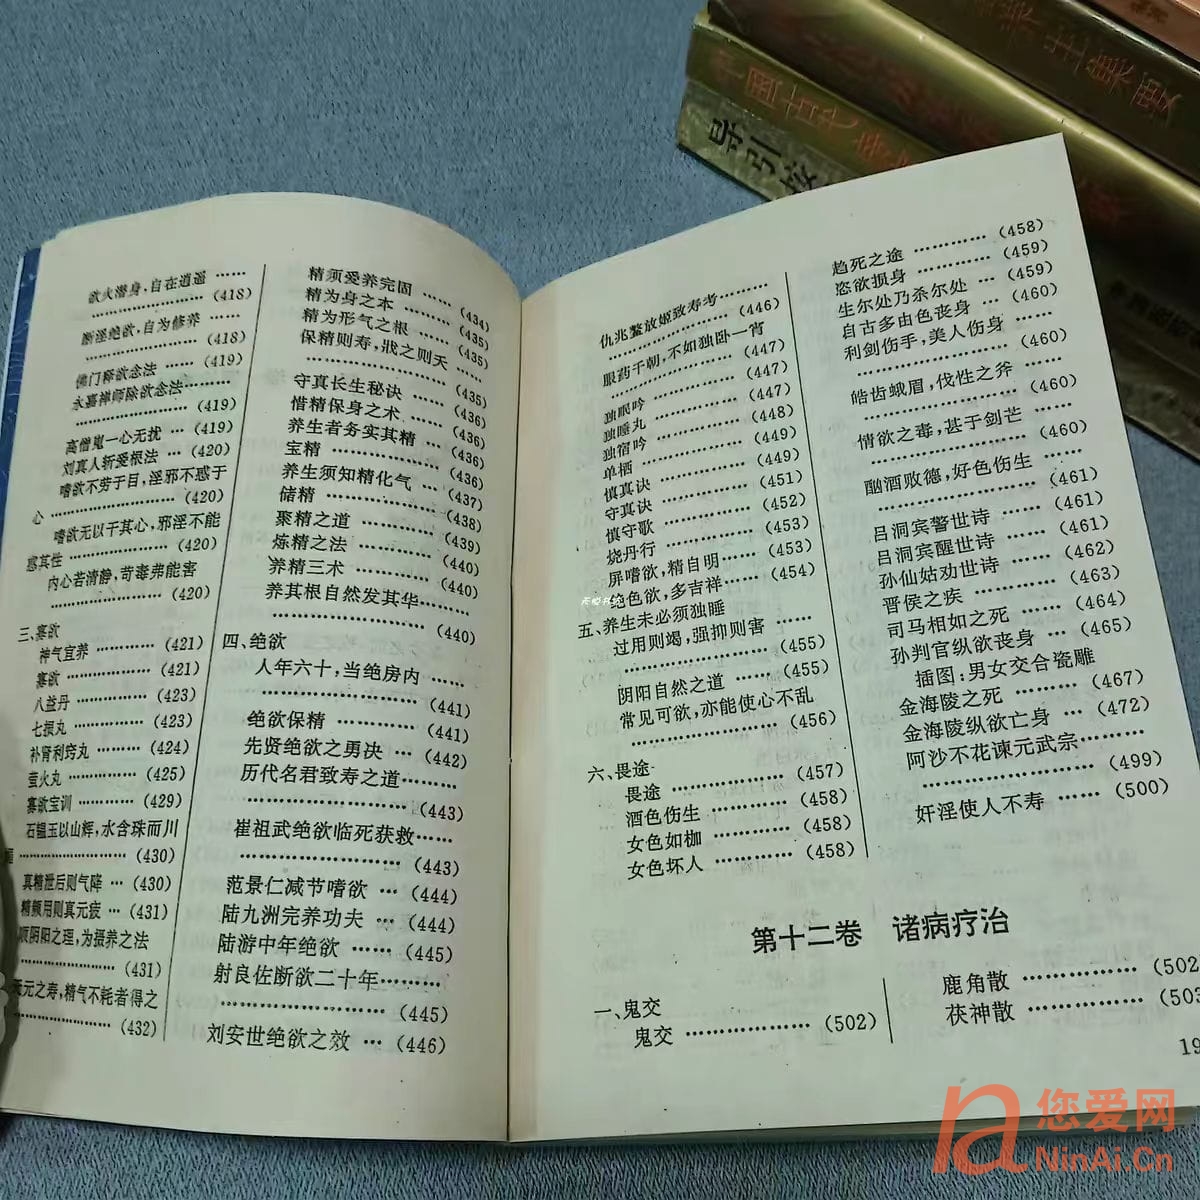 欲火潜身,自在逍遥 ……
………………… (418)
断淫绝欲,自为修养 ……
………………… (418)
佛门释欲念法 …… (419)
永嘉禅师除欲念法………
………………… (419)
高僧鬼一心无扰 … (419)
刘真人斩爱根法 … (420)
嗜欲不劳于目,淫邪不惑于
心 ………………… (420)
嗜欲无以干其心,邪淫不能
惑其性 …………… (420)
内心若清静,苛毒弗能害
………………… (420)
三、寡欲
神气宜养 ………… (421)
寡欲 ……………… (421)
八益丹 …………… (423)
七损丸 …………… (423)
补肾利窍丸 ……… (424)
萤火丸 …………… (425)
寡欲宝训 ………… (429)
石韫玉以山辉,水含珠而川
………………… (430)
真精泄后则气降 … (430)
精频用则真元疲 … (431)
阴阳之理,为摄养之法
………………… (431)
天元之寿,精气不耗者得之
………………… (432)
精须爱养完固 …… (434)
精为身之本 ……… (435)
精为形气之根 …… (435)
保精则寿,戕之则夭 ……
………………… (435)
守真长生秘诀 …… (436)
惜精保身之术 …… (436)
养生者务实其精 … (436)
宝精 ……………… (436)
养生须知精化气 … (437)
储精 ……………… (438)
聚精之道 ………… (439)
炼精之法 ………… (440)
养精三术 ………… (440)
养其根自然发其华………
………………… (440)
四、绝欲
人年六十,当绝房内 ……
………………… (441)
绝欲保精 ………… (441)
先贤绝欲之勇决 … (442)
历代名君致寿之道………
………………… (443)
崔祖武绝欲临死获救……
………………… (443)
范景仁减节嗜欲 … (444)
陆九洲完养功夫 … (444)
陆游中年绝欲 …… (445)
射良佐断欲二十年………
………………… (445)
刘安世绝欲之效 … (446)
仇兆鳌放姬致寿考………
………………… (446)
服药千朝,不如独卧一宵
………………… (447)
独眠吟 …………… (447)
独睡丸 …………… (447)
独宿吟 …………… (448)
单栖 ……………… (449)
慎真诀 …………… (449)
守真诀 …………… (451)
慎守歌 …………… (452)
烧丹行 …………… (453)
屏嗜欲,精自明… (453)
绝色欲,多吉祥…… (454)
五、养生未必须独睡
过用则竭,强抑则害 ……
………………… (455)
阴阳自然之道 …… (455)
常见可欲,亦能使心不乱
………………… (456)
六、畏途
畏途 ……………… (457)
酒色伤生 ………… (458)
女色如枷 ………… (458)
女色坏人 ………… (458)
趋死之途 ………… (458)
恣欲损身 ………… (459)
生尔处乃杀尔处 … (459)
自古多由色丧身 … (460)
利剑伤手,美人伤身
………………… (460)
皓齿蛾眉,伐性之斧 …
………………… (460)
情欲之毒,甚于剑芒
………………… (460)
酗酒败德,好色伤生 …
………………… (461)
吕洞宾警世诗 …… (461)
吕洞宾醒世诗 …… (461)
孙仙姑劝世诗 …… (462)
晋侯之疾 ………… (463)
司马相如之死 …… (464)
孙判官纵欲丧身 … (465)
插图:男女交合瓷雕
金海陵之死 ……… (467)
金海陵纵欲亡身 … (472)
阿沙不花谏元武宗………
………………… (499)
奸淫使人不寿 …… (500)
第十二卷 诸病疗治
一、鬼交
鬼交 ……………… (502)
鹿角散 …………… (502)
茯神散 …………… (503
19
您爱网
NinAi.Cn